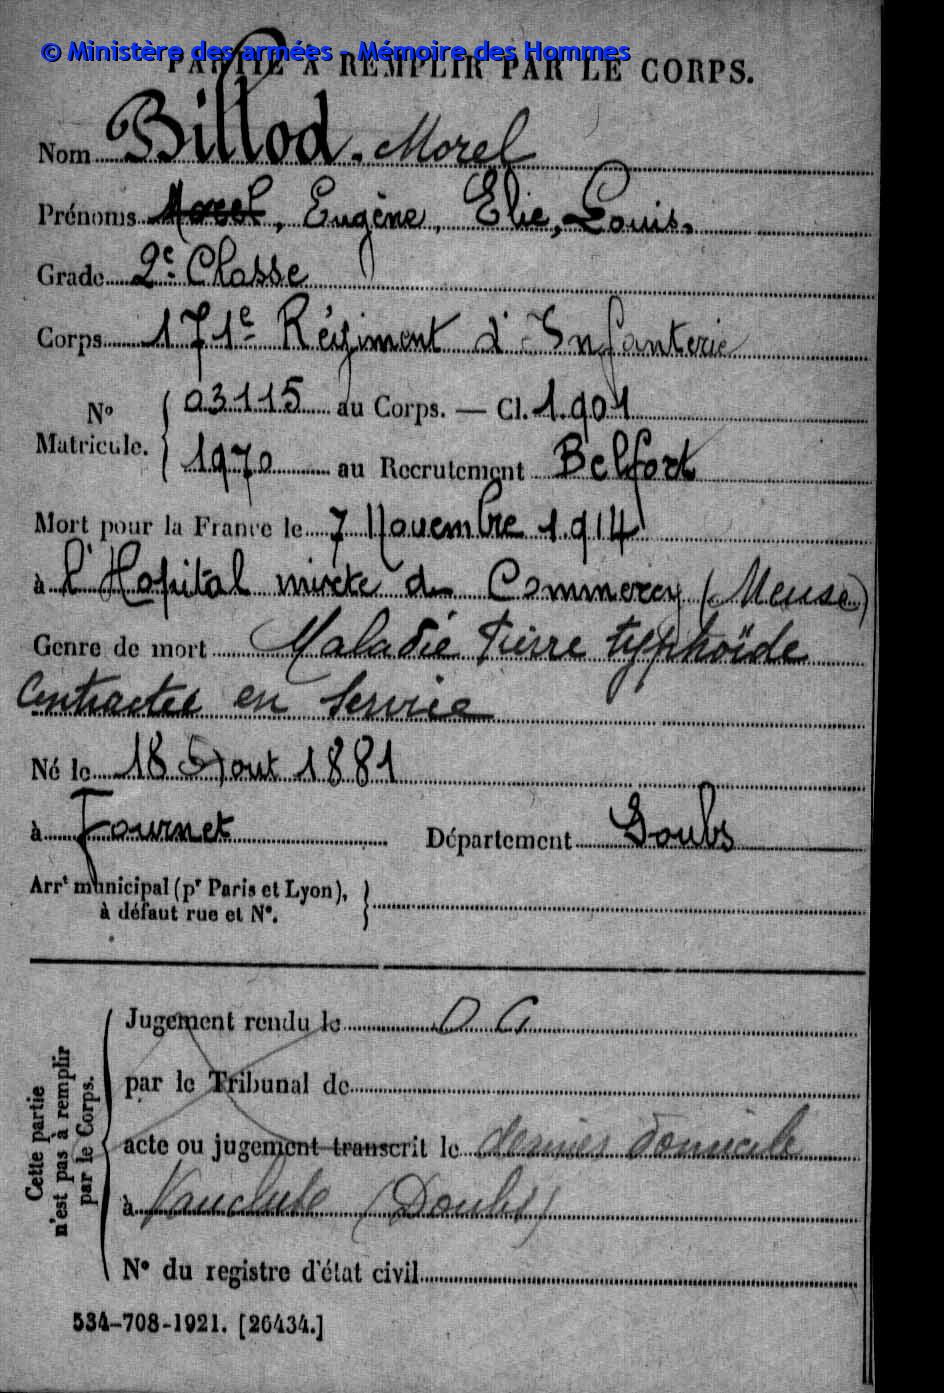 © Ministère des armées - Mémoire des Hommes
PARTIE À REMPLIR PAR LE CORPS.
Nom Billod. Morel
Prénoms Morel, Eugène, Elie, Louis.
Grade 2e Classe
Corps 171e Régiment d'Infanterie
No Matricule. { 03115 au Corps. — Cl. 1.901
1970 au Recrutement Belfort
Mort pour la France le 7 Novembre 1.914
à l'Hopital mixte de Commercy (Meuse)
Genre de mort Maladie fièvre typhoïde
Contractée en Service
Né le 18 Aout 1881
à Fournet Département Doubs
Arrt municipal (pr Paris et Lyon),
à défaut rue et No.
Cette partie
n'est pas à remplir
par le Corps.
Jugement rendu le
par le Tribunal de
acte ou jugement transcrit le dernier domicile
à Vaucluse (Doubs)
No du registre d'état civil
534-708-1921. [26434.]